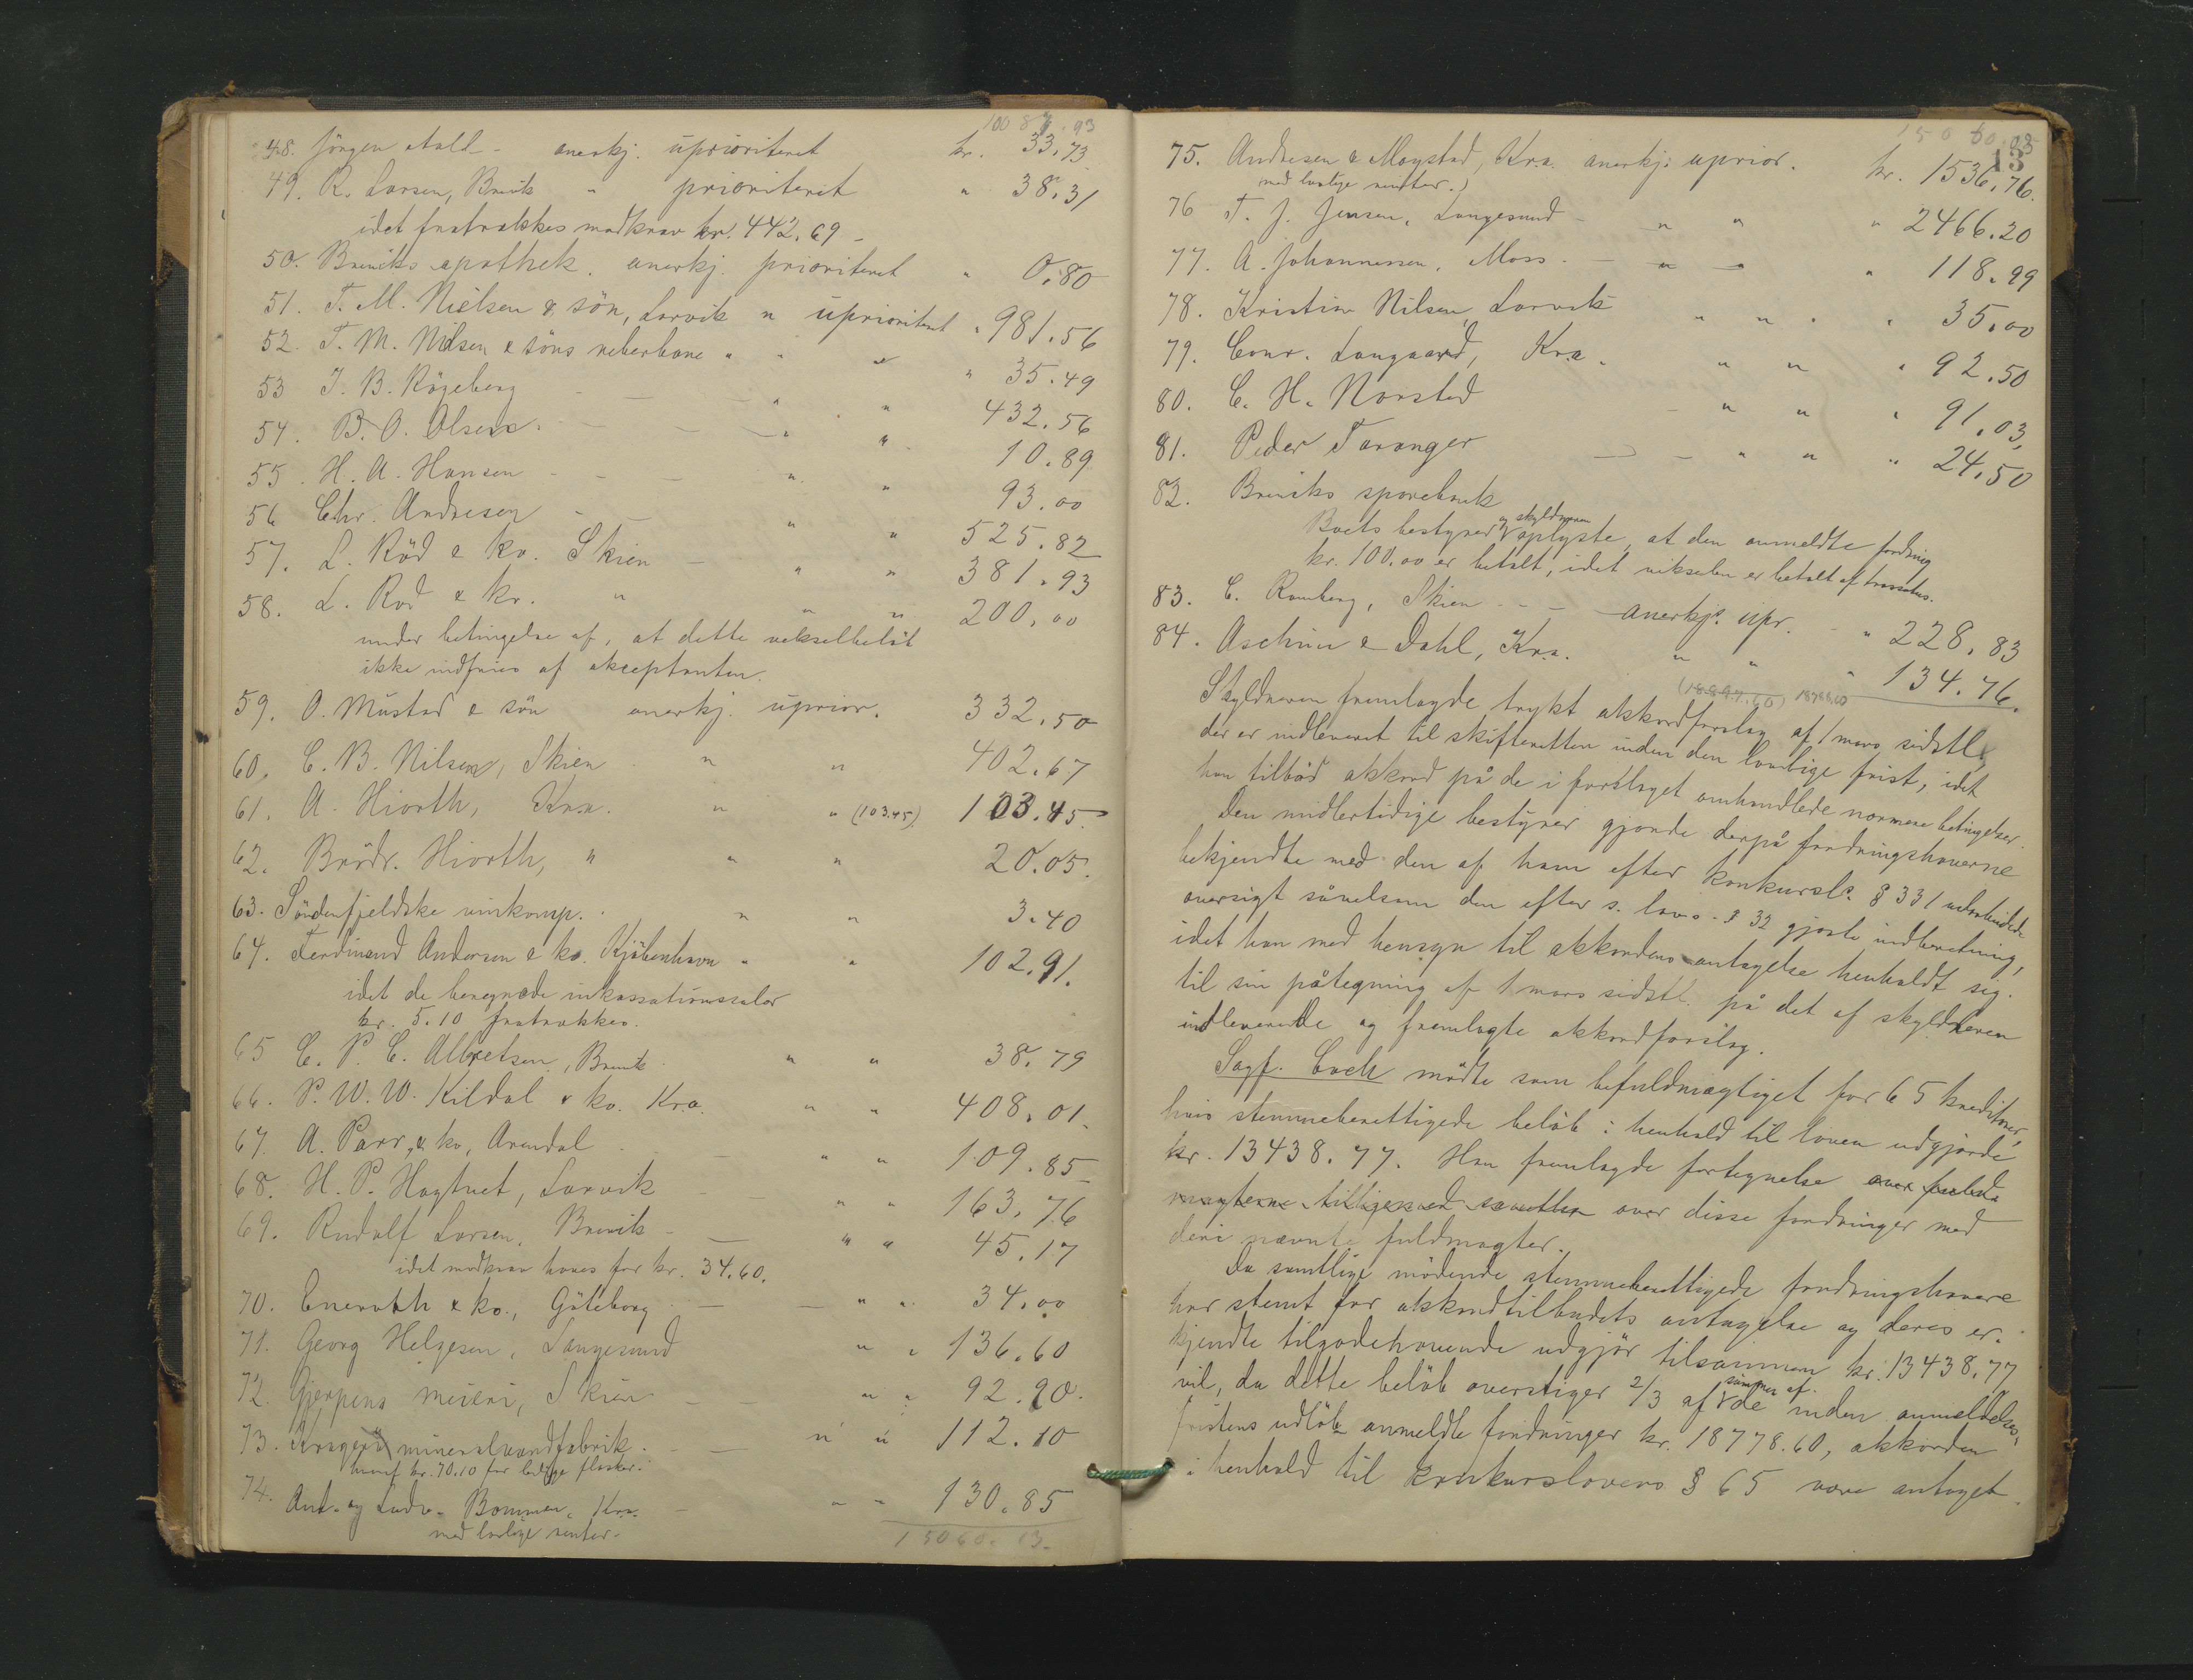 100 87.93
48. Jörgen Stall - anerkj. uprioriteret kr. 33,73
49. R. Larsen, Brevik " prioriteret " 38.31
idet fratrækkes modkrav kr. 442.69 -
50. Breviks apothek. anerkj. prioriteret " 0.80
51. T. M. Nielsen & sön, Larvik " uprioriteret " 981.56
52. T. M. Nilsen & söns reberbane " " " " 35.49
53 J. B. Rögeberg - - - " " 432.56
54. B. O. Olsen. - - - " " 10.89
55. H. A. Hansen - - - " " 93.00
56 Chr. Andresen - - " " 525.82
57. L. Röd & ko. Skien - " " 381.93
58. L. Röd & ko. " " " 200.00
under betingelse af, at dette vekselbelöb
ikke indfries af akseptanten.
59. O. Mustad & sön anerkj. uprior. 332.50
60. C. B. Nilsen, Skien " " 402.67
61. A. Hiorth, Kra. " " (103.45) 103.45
62. Brödr. Hiorth, " " " 20.05.
63. Söndenfjeldske vinkomp. " " 3.40
64. Ferdinand Andersen & ko. Kjöbenhavn " " 102.91.
idet de beregnede inkassationssalær
kr. 5.10 fratrækkes.
65 C. P. C. Albretsen, Brevik " " 38.79
66. P. W. W. Kildal & ko. Kra. " " 408.01.
67. A. Parr & ko, Arendal - " " 109.85
68. H. P. Hagtvet, Larvik - - " " 163.76
69. Rudolf Larsen, Brevik - - " " 45.17
idet modkrav haves for kr. 34.60.
70. Eneroth & ko., Göteborg - - " " 34.00
71. Georg Helgesen, Langesund " " 136.60
72. Gjerpens meieri, Skien - - " " 92.20.
73. Kragerö mineralvandfabrik. - " " 112.10
hvoraf kr. 70.10 for ledige flasker.
74. Ant. og Ludv. Bommen, Kra. - " " 130.85
med lovlige renter.
15060.03.
15060.03
13
75. Andresen & Mogstad, Kra. anerkj. uprior. kr. 1536.76.
med lovlige renter.)
76 T. J. Jensen, Langesund - " " " 2466.20
77. A. Johannessen, Moss. - " " " 118.99
78. Kristin Nilsen, Larvik " " " 35.00
79. Conr. Langaard, Kra. " " " 92.50
80. C. H. Norstad - " " " 91.03
81. Peder Taranger - - " " " 24.50
82. Breviks sparebank
og skyldneren
Boets bestyrer oplyste, at den anmeldte fordring
kr. 100.00 er betalt, idet vekselen er betalt af trassatus.
83. C. Romberg, Skien - - - anerkj. upr. - " 228.83
84. Aschim & Dahl, Kra. " " " 134.76.
(18897.60) 18788.60
Skyldneren fremlagde trykt akkordforslag af 1 mars sidstl.
der er indleveret til skifteretten inden den lovlige frist, idet
han tilböd akkord på de i forslaget omhandlede nærmere betingelser.
Den midlertidige bestyrer gjorde derpå fordringshaverne
bekjendte med den af ham efter konkursl. § 331 udarbeidede
oversigt såvelsom den efter s. lovs § 32 gjorte indberetning,
idet han med hensyn til akkordens antagelse henholdt sig
til sin påtegning af 1 mars sidstl. på det af skyldneren
indleverede og fremlagte akkordforslag.
Sagf. Coch mödte som befuldmægtiget for 65 kreditorer,
hvis stemmeberettigede belöb i henhold til loven udgjorde
kr. 13438.77. Han fremlagde fortegnelse over fuld-
magterne tilligemed samtlige over disse fordringer med
deri nævnte fuldmagter.
Da samtlige mödende stemmeberettigede fordringshavere
har stemt for akkordtilbudets antagelse og deres er-
kjendte tilgodehavende udgjör tilsammen kr. 13438.77
summen af
vil, da dette belöb overstiger 2/3 af de inden anmeldelses-
fristens udlöb anmeldte fordringer kr. 18778.60, akkorden
i henhold til konkurslovens § 65 være antaget.